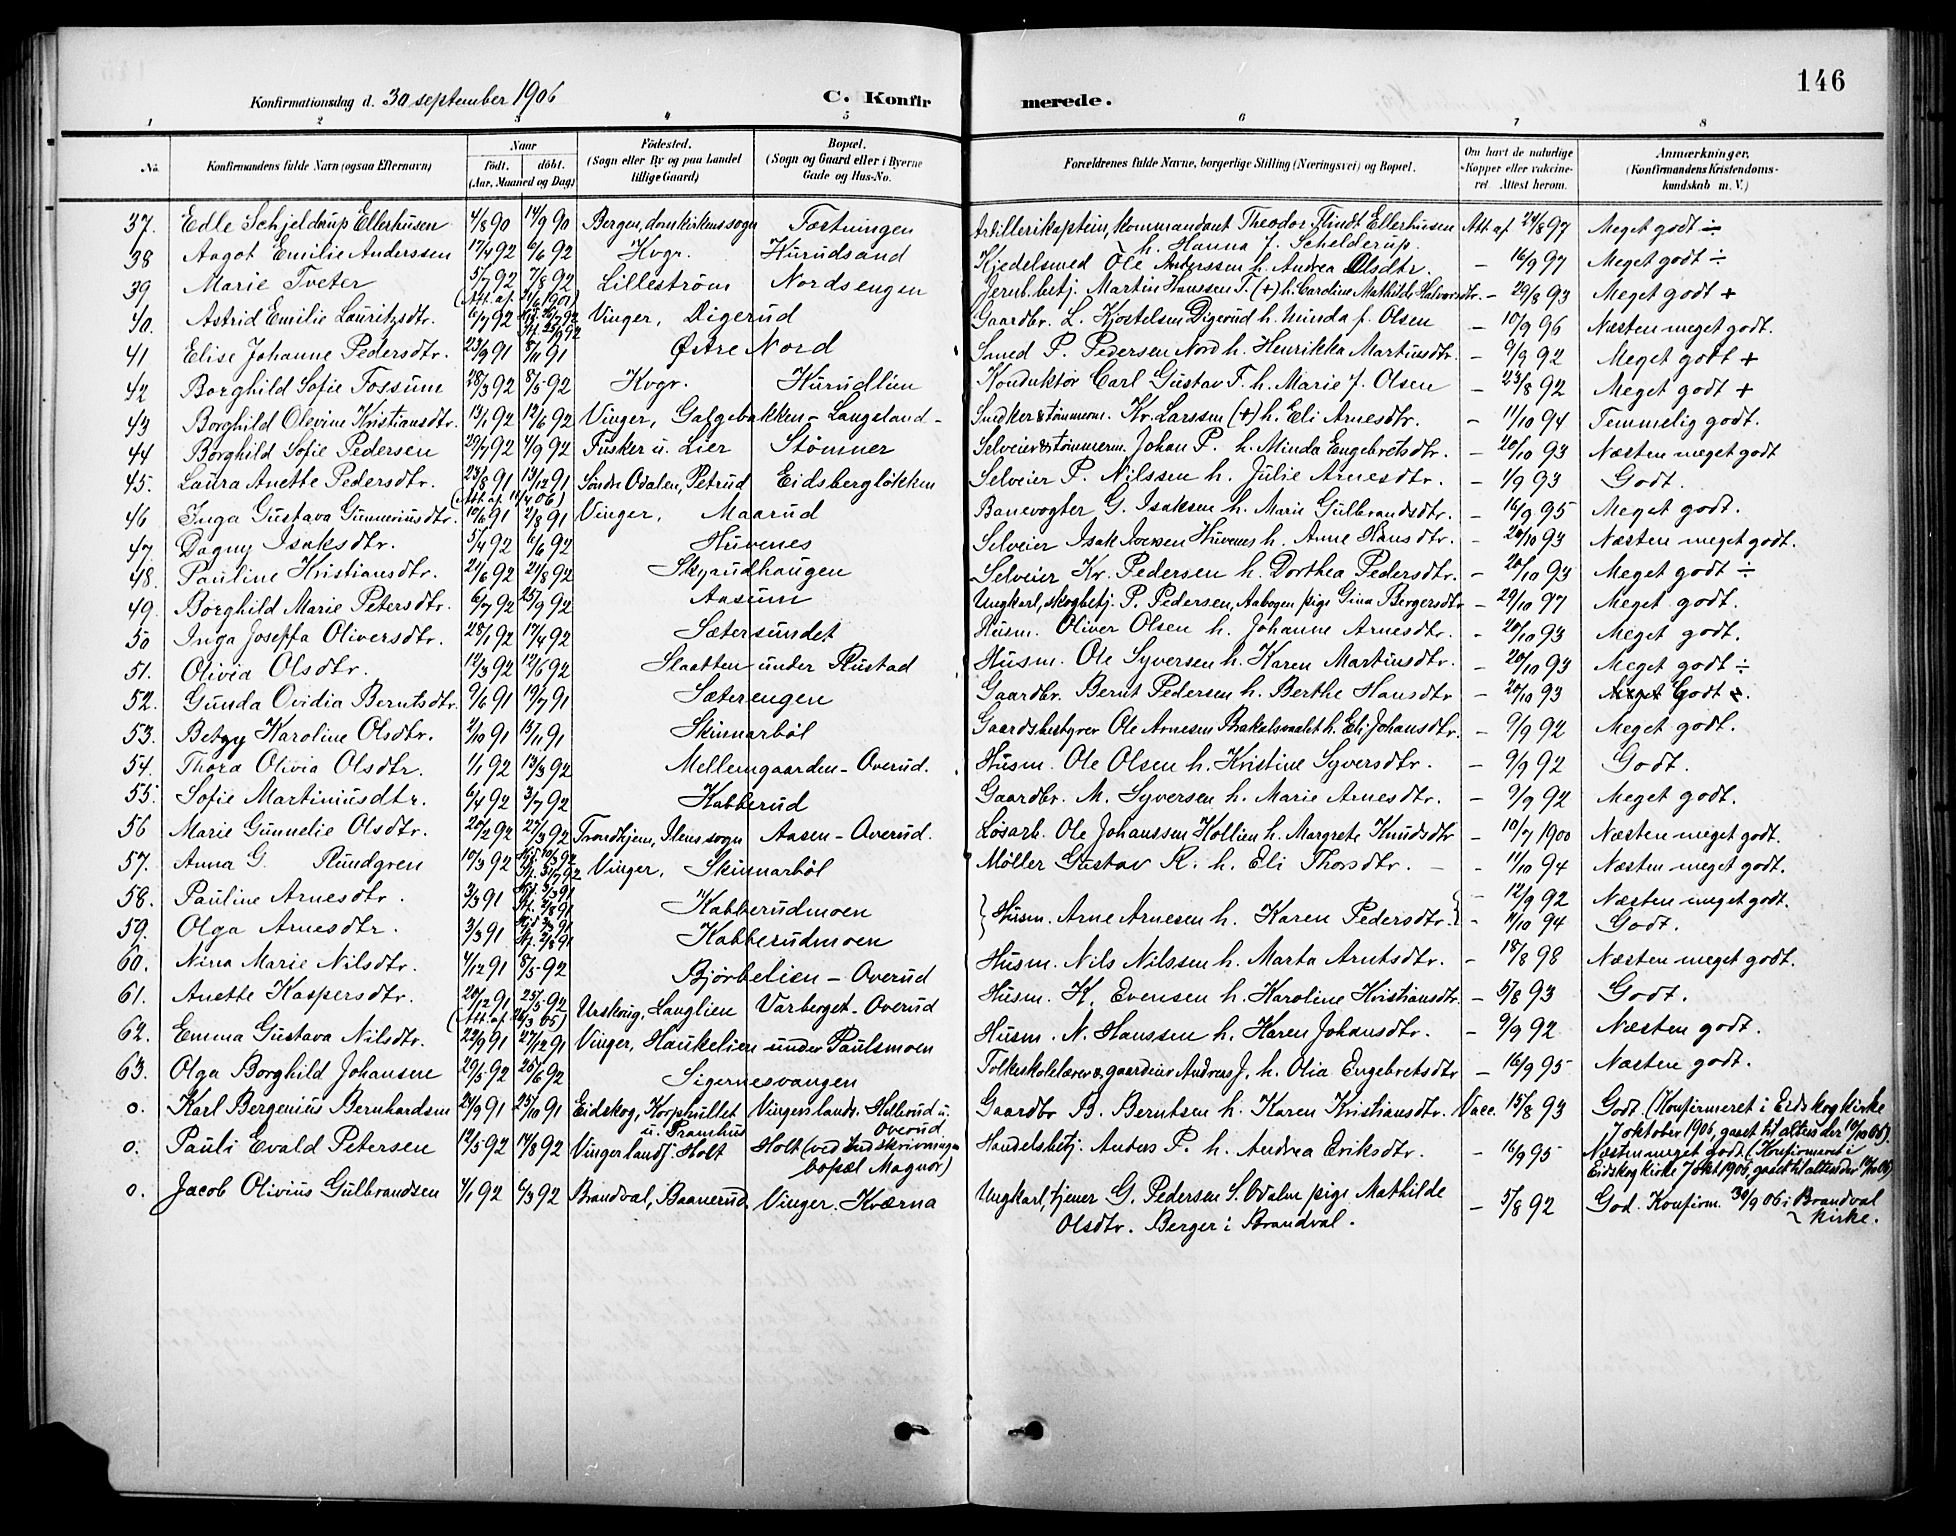 146
Konfirmationsdag d. 30 september 1906 C. Konfirmerede.
1 2 3 4 5 6 7 8
No. Konfirmandens fulde Navn (ogsaa Efternavn) Naar født. døbt. (Aar, Maaned og Dag) Fødested. (Sogn eller By og paa Landet tillige Gaard) Bopæl. (Sogn og Gaard eller i Byerne Gade og Hus-No. Forældrenes fulde Navne, borgerlige Stilling (Næringsvei) og Bopæl. Om havt de naturlige Kopper eller vaccineret. Attest herom. Anmærkninger. (Konfirmandens Kristendomskundskab m. V.)
37. Edle Schjelderup Ellerhusen 4/8 90 14/9 90 Bergen, domkirkens sogn Fæstningen Artillerikaptein, kommandant Theodor Flindt Ellerhusen Att af 24/8 97 Meget godt ÷
h. Hanna f. Schelderup.
38 Aagot Emilie Anderssen 17/4 92 6/6 92 Kvgr. Hurudsand Kjedelsmed Ole Anderssen h. Andrea Olsdtr. - 16/9 97 Meget godt ÷
39 Marie Tveter 5/7 92 7/8 92 Lilleström Nordsengen Jernb.betj. Martin Hanssen T. (+) h. Caroline Mathilde Halvorsdtr. - 29/8 93 Meget godt +
40. Astrid Emilie Lauritzsdtr. 6/7 92 Vinger, Digerud Gaardbr. L. Kjostelsen Digerud h. Minda f. Olsen - 10/9 96 Næsten meget godt.
41 Elise Johanne Pedersdtr. 23/9 91 8/11 91 Østre Nord Smed P. Pedersen Nord h. Henrikka Martinsdtr. - 9/9 92 Meget godt +
42 Borghild Sofie Fossum 28/3 92 8/5 92 Kvgr. Hurudlien Konduktør Carl Gustav F. h. Marie f. Olsen - 23/8 92 Meget godt +
43 Borghild Olevine Kristiansdtr. 13/1 92 12/6 92 Vinger, Galgebakken - Langeland - Snedker & tømmerm. Kr. Larssen (+) h. Eli Arnesdtr. - 11/10 94 Temmelig godt.
44 Borghild Sofie Pedersen 29/7 92 4/9 92 Fusker u. Lier Stømner Selveier & tømmerm. Johan P. h. Minda Engebretsdtr. - 20/10 93 Næsten meget godt
45. Laura Anette Pedersdtr. 23/8 91 13/12 91 Söndre Odalen, Petrud Eidsbergløkken Selveier P. Nilssen h. Julie Arnesdtr. - 1/9 93 Godt.
46 Inga Gustava Gunneriusdtr. 10/6 91 2/8 91 Vinger, Maarud Banevogter G. Isaksen h. Marie Gulbrandsdtr. - 16/9 95 Meget godt.
47 Dagny Isaksdtr. 5/4 92 6/6 92 Huvenes Selveier Isak Iversen Huvenes h. Anne Hansdtr. - 20/10 93 Næsten meget godt.
48. Pauline Kristiansdtr. 24/6 92 21/8 92 Skjraudhaugen Selveier Kr. Pedersen h. Dorthea Pedersdtr. - 20/10 93 Meget godt ÷
49. Borghild Marie Petersdtr. 6/7 92 25/9 92 Aasum Ungkarl, skogbetj. P. Pedersen, Aabogen pige Gina Bergersdtr - 29/10 97 Meget godt.
50 Inga Joseffa Oliversdtr. 28/1 92 17/4 92 Sætersundet Husm. Oliver Olsen h. Johanne Arnesdtr. - 20/10 93 Meget godt.
51. Olivia Olsdtr. 12/3 92 12/6 92 Slaatten under Rustad Husm. Ole Syversen h. Karen Martinsdtr. - 20/10 93 Meget godt ÷
52. Gunda Ovidia Berntsdtr. 9/6 91 19/7 91 Sæterengen Gaardbr. Bernt Pedersen h. Berthe Hansdtr - 20/10 93 Godt.
53. Betzy Karoline Olsdtr. 2/10 91 15/11 91 Skinnarbøl Gaardsbestyrer Ole Arnesen h. Eli Johansdtr. - 9/9 92 Meget godt.
54. Thora Olivia Olsdtr. 1/1 92 13/3 92 Mellemgaarden - Overud. Husm. Ole Olsen h. Kristine Syversdtr. - 9/9 92 Godt.
55. Sofie Martiniusdtr. 6/4 92 3/7 92 Kabberud Gaardbr. M. Syversen h. Marie Arnesdtr. - 9/9 92 Meget godt.
56 Marie Gunnelie Olsdtr. 20/2 92 27/3 92 Trondhjem, Ilens sogn Aasen - Overud. Løsarb. Ole Johanssen Hollien h. Margrete Knudsdtr - 10/7 1900 Næsten meget godt.
57. Anna G. Rundgren 10/3 92 Vinger, Skinnarbøl Møller Gustav R. h. Eli Thorsdtr. - 11/10 94 Næsten meget godt.
58. Pauline Arnesdtr. 3/3 91 Kabberudmoen Husm. Arne Arnesen h. Karen Pedersdtr. - 12/9 92 Næsten meget godt.
59. Olga Arnesdtr. 3/3 91 Kabberudmoen - 11/10 94 Godt.
60. Nina Marie Nilsdtr. 4/12 91 8/5 92 Bjørbelien - Overud Husm. Nils Nilssen h. Marta Arntsdtr. - 18/8 98 Næsten meget godt.
61. Anette Kaspersdtr. 20/12 91 25/5 92 Urskoug, Langlien Varberget - Overud Husm. K. Evensen h. Karoline Kristiansdtr - 5/8 93 Godt.
62. Emma Gustava Nilsdtr. 22/9 91 27/12 91 Vinger, Haukelien under Paulsmoen Husm. N. Hanssen h. Karen Johansdtr. - 9/9 92 Næsten godt.
63. Olga Borghild Johansen 29/5 92 26/6 92 Sigernesvangen Folkeskolelærer & gaardeier Andreas J. h. Olia Engebretsdtr - 16/9 95 Næsten godt.
o. Karl Bergenius Bernhardsen 24/9 91 25/10 91 Eidskog, Korphullet u. Pramhus Vingerslands. Hellerud u. Overud Gaardbr B. Berntsen h. Karen Kristiansdtr. Vacc. 15/8 93 Godt (Konfirmeret i Eidskog kirke
7 oktober 1906, gaaet til alters der 12/10 06).
o. Pauli Evald Petersen 12/5 92 14/8 92 Vingerlands. Holt Holt (ved Indskrivningen bopæl Magnor) Handelsbetj. Anders P. h. Andrea Eriksdtr. - 16/9 95 Næsten meget godt (Konfirmeret i
Eidskog kirke 7 okt 1906, gaaet til alters der 12/10 06)
o. Jacob Olivius Gulbrandsen 4/1 92 6/3 92 Brandval, Baanerud. Vinger. Kværna Ungkarl, tjener G. Pedersen S. Odalen pige Mathilde - 5/8 92 God. Konfirm. 30/9 06 i Brandval
Olsdtr. Berger i Brandval. kirke.